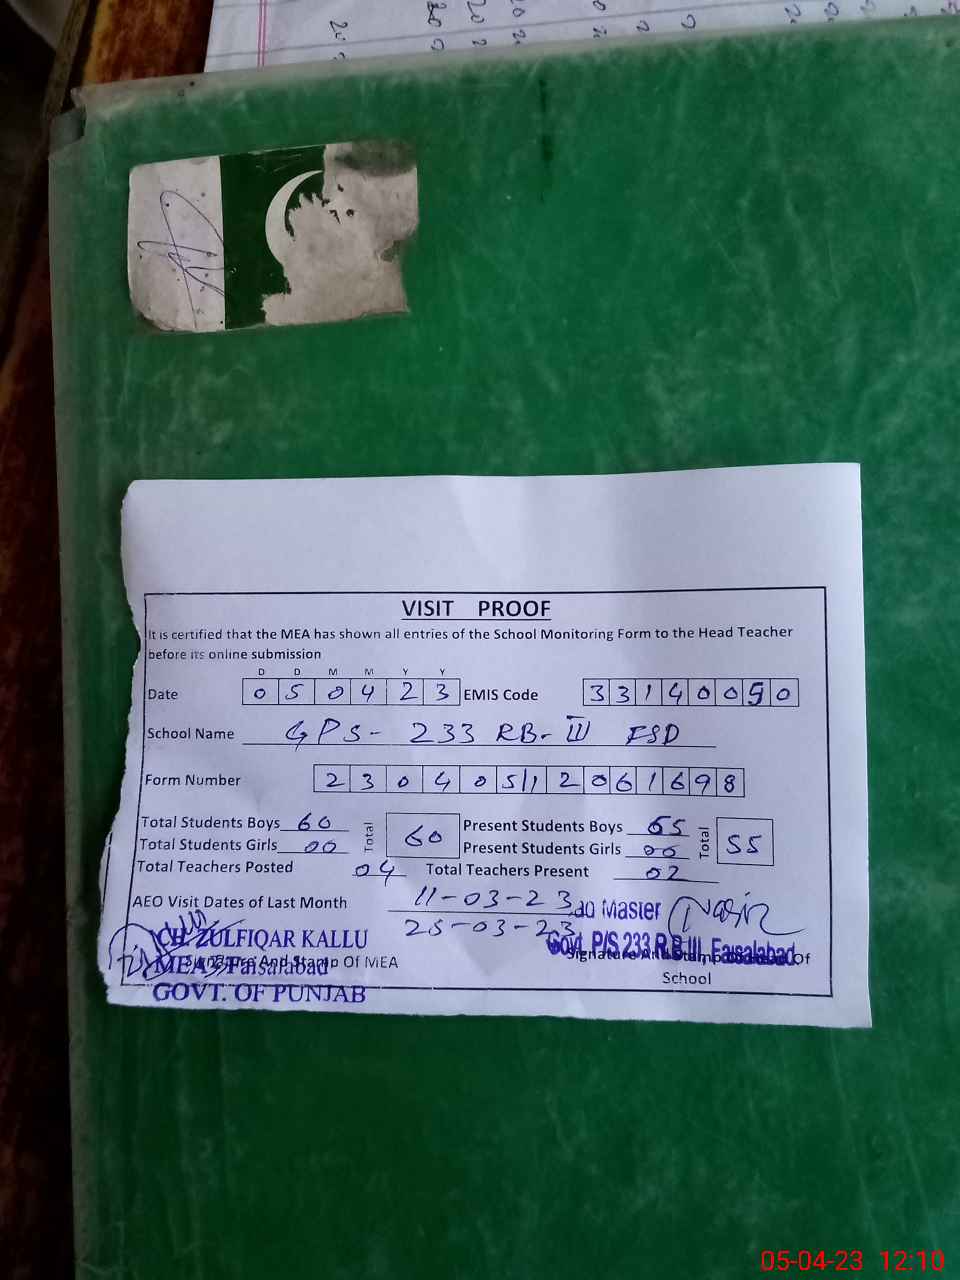 VISIT PROOF
It is certified that the MEA has shown all entries of the School Monitoring Form to the Head Teacher
before its online submission
D D M M Y Y
Date 0 5 0 4 2 3 EMIS Code 3 3 1 4 0 0 5 0
School Name GPS- 233 RB- III FSD
Form Number 2 3 0 4 0 5 1 1 2 0 6 1 6 9 8
Total Students Boys 60 Total 60 Present Students Boys 55 Total 55
Total Students Girls 00 Present Students Girls 00
Total Teachers Posted 04 Total Teachers Present 02
AEO Visit Dates of Last Month 11-03-23
25-03-23
Master
CH. ZULFIQAR KALLU
Govt. P/S 233 R.B III, Faisalabad.
MEA Faisalabad
Signature And Stamp Of MEA
Signature And Stamp Of
School
GOVT. OF PUNJAB
05-04-23 12:10